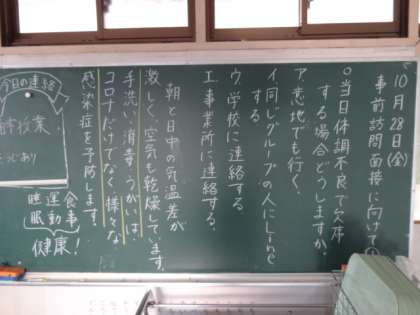 10月28日(金)
事前訪問面接に向けて①
○当日体調不良で欠席
する場合どうしますか。
ア.意地でも行く。
イ.同じグループの人にLineで
する。
ウ.学校に連絡する
エ.事業所に連絡する。
朝と日中の気温差が
激しく、空気も乾燥しています。
手洗い、消毒、うがいは、
コロナだけでなく様々な
感染症を予防します。
食事
運動
睡眠
健康!
今日の連絡